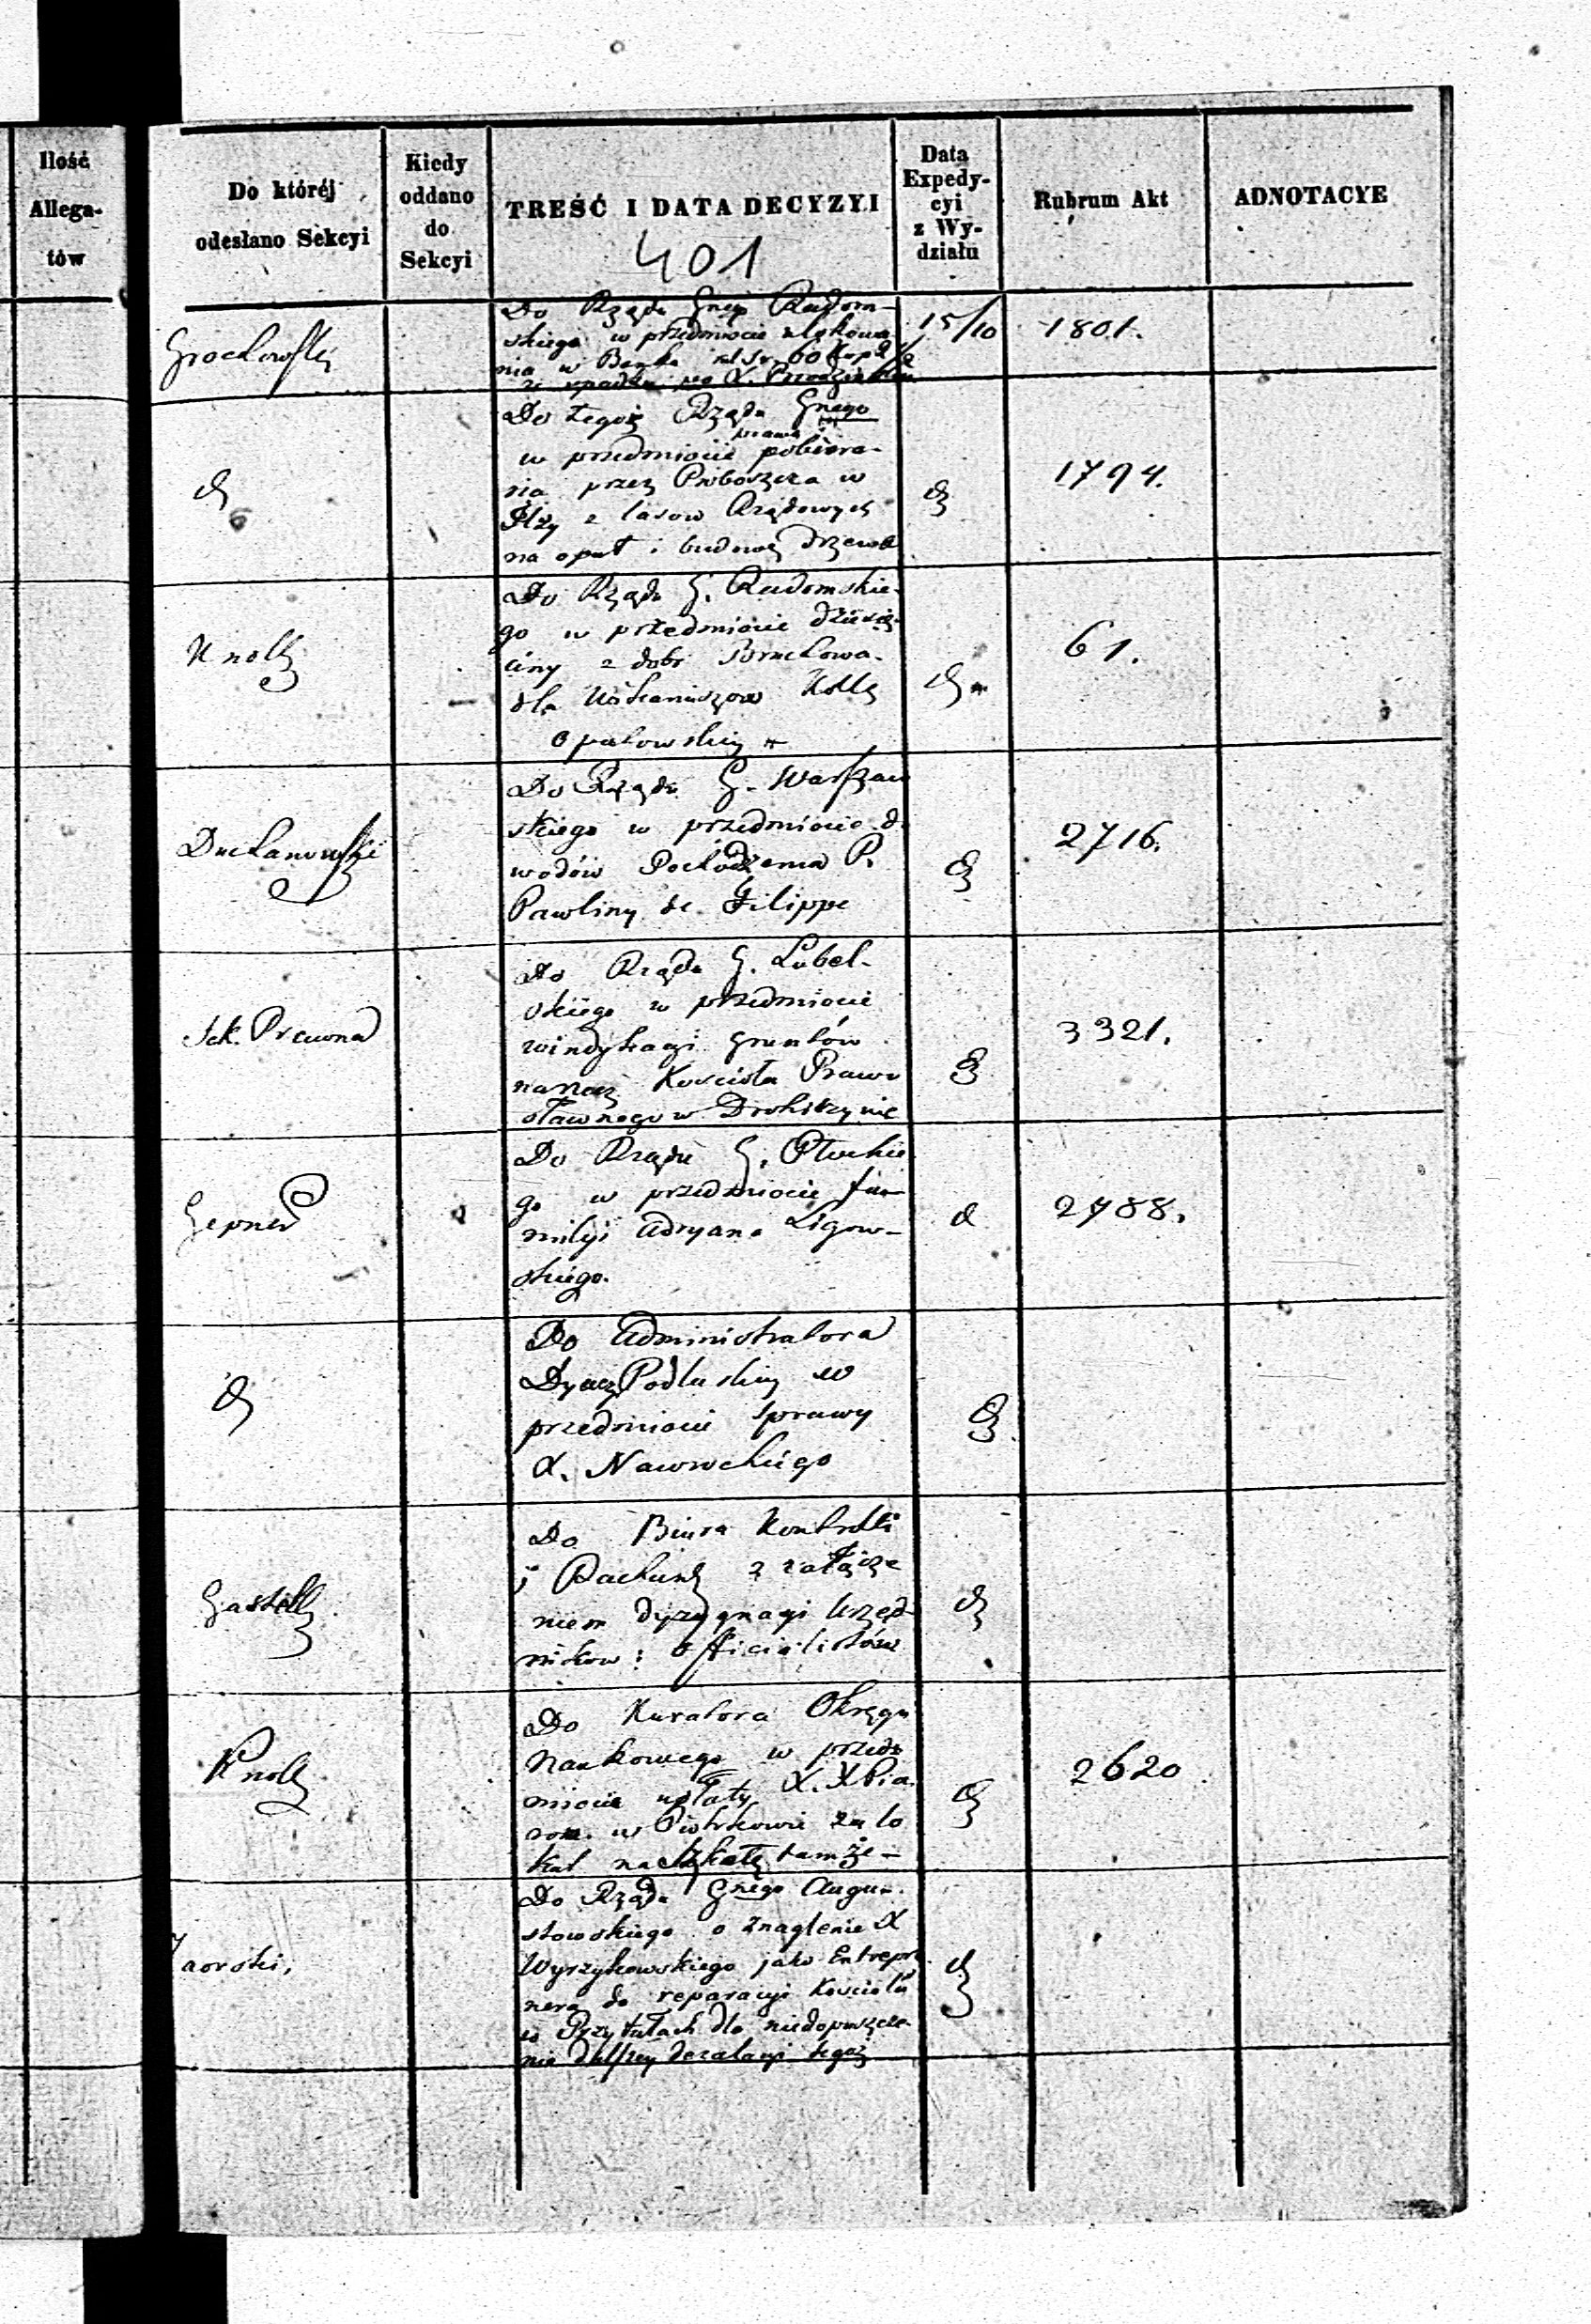 Ilość
Allega-
tów
Do któréj
odesłano Sekcyi
Kiedy
oddano
do
Sekcyi
TREŚĆ I DATA DECYZYI
401
Data
Expedy-
cyi
z Wy-
działu
Rubrum Akt
ADNOTACYE
Grochowski
Do Rządu Gnego Radom-
skiego w przedmiocie ulokowa
nia w Banku rs. 60 kop
po X.
15/10
1801.
Do tegoż Rządu Gnego
prawa
w przedmiocie pobiera-
nia przez Proboszcza w
Iłży z lasow Rządowych
na opał i budowę drzewa
1794.
Knoll
Do Rządu G. Radomskie-
go w przedmiocie dziesię-
ciny z dobr
dla Wikariuszow Kolle
Opatowskiey
61.
Duchanowski
Do Rządu G. Warszaw
skiego w przedmiocie do
wodów Pochodzenia P.
Pawliny de Filippe
2716.
Sek. Prawna
Do Rządu G. Lubel-
skiego w przedmiocie
windykacyi gruntów
na rzecz Kościoła Prawo
sławnego w Drohiczynie
3321.
Gepner
Do Rządu G. Płockie
go w przedmiocie fa-
milyi Adryana Ligow-
skiego.
2788.
Do Administratora
Dyecz. Podlaskiey w
przedmiocie sprawy
X. Nawrockiego
Gastell
Do Biura Kontrolli
i Rachunk z załącze
niem dyzygnacyi Urzęd-
nikow i Officialistów
Knoll
Do Kuratora Okręgu
Naukowego w przed
miocie opłaty X.X. Pia
rom w Piotrkowie za lo
kal na szkołę tamże -
2620
Jaorski,
Do Rządu Gnego Augu-
stowskiego o znaglenie X
Wyrzykowskiego jako Entrepre
nera do reparacyi Kościoła
w Przytułach dla niedopuszcze
nia dalszey dezolacyi tegoż